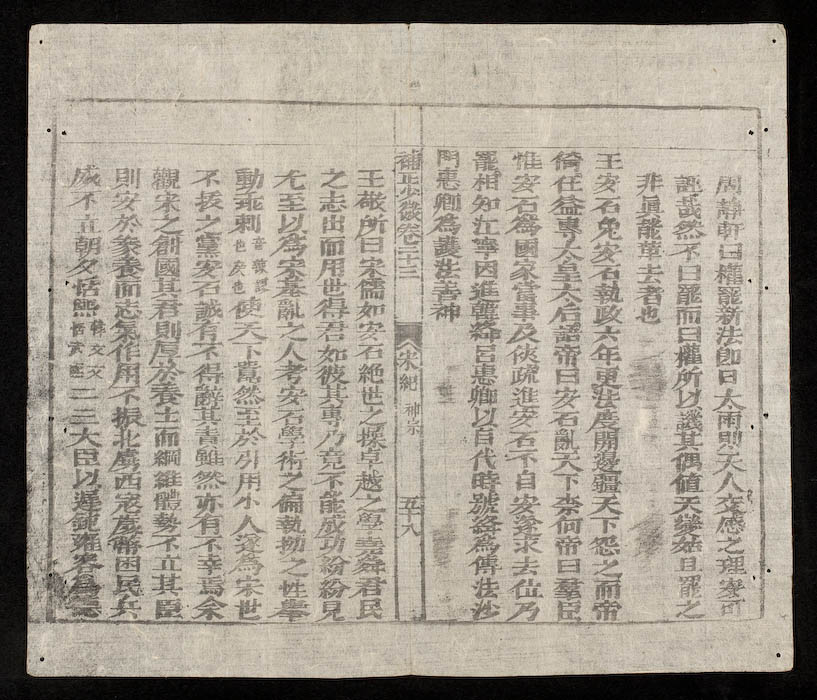 周靜軒曰權罷新法即日大雨則天人交感之理寧可
誣哉然不曰罷而曰權所以譏其偶值天變姑且罷之
非眞能革去者也
王安石免安石執政六年更法度開邊疆天下怨之而帝
倚任益專太皇太后語帝曰安石亂天下柰何帝曰羣臣
惟安石爲國家當事及俠疏進安石不自安遂求去位乃
罷相知江寧因進韓絳呂惠卿以自代時號絳爲傳法沙
門惠卿爲護法善神
補正少微卷二十三 宋紀 神宗 五十八
王敬所曰宋儒如安石絕世之操卓越之學堯舜君民
之志出而用世得君如彼其專乃竟不能成功紛紛見
尤至以爲宋基亂之人考安石學術之偏執拗之性舉
動乖剌 使天下嚣然至於引用小人遂爲宋世
不拔之黨安石誠有不得辭其責雖然亦有不幸焉余
觀宋之創國其君則厚於養士而綱維體勢不立其臣
則安於豢養而志氣作用不振北虜西寇歲幣困民兵
威不立朝夕恬熙 二三大臣以遲鈍雍容爲